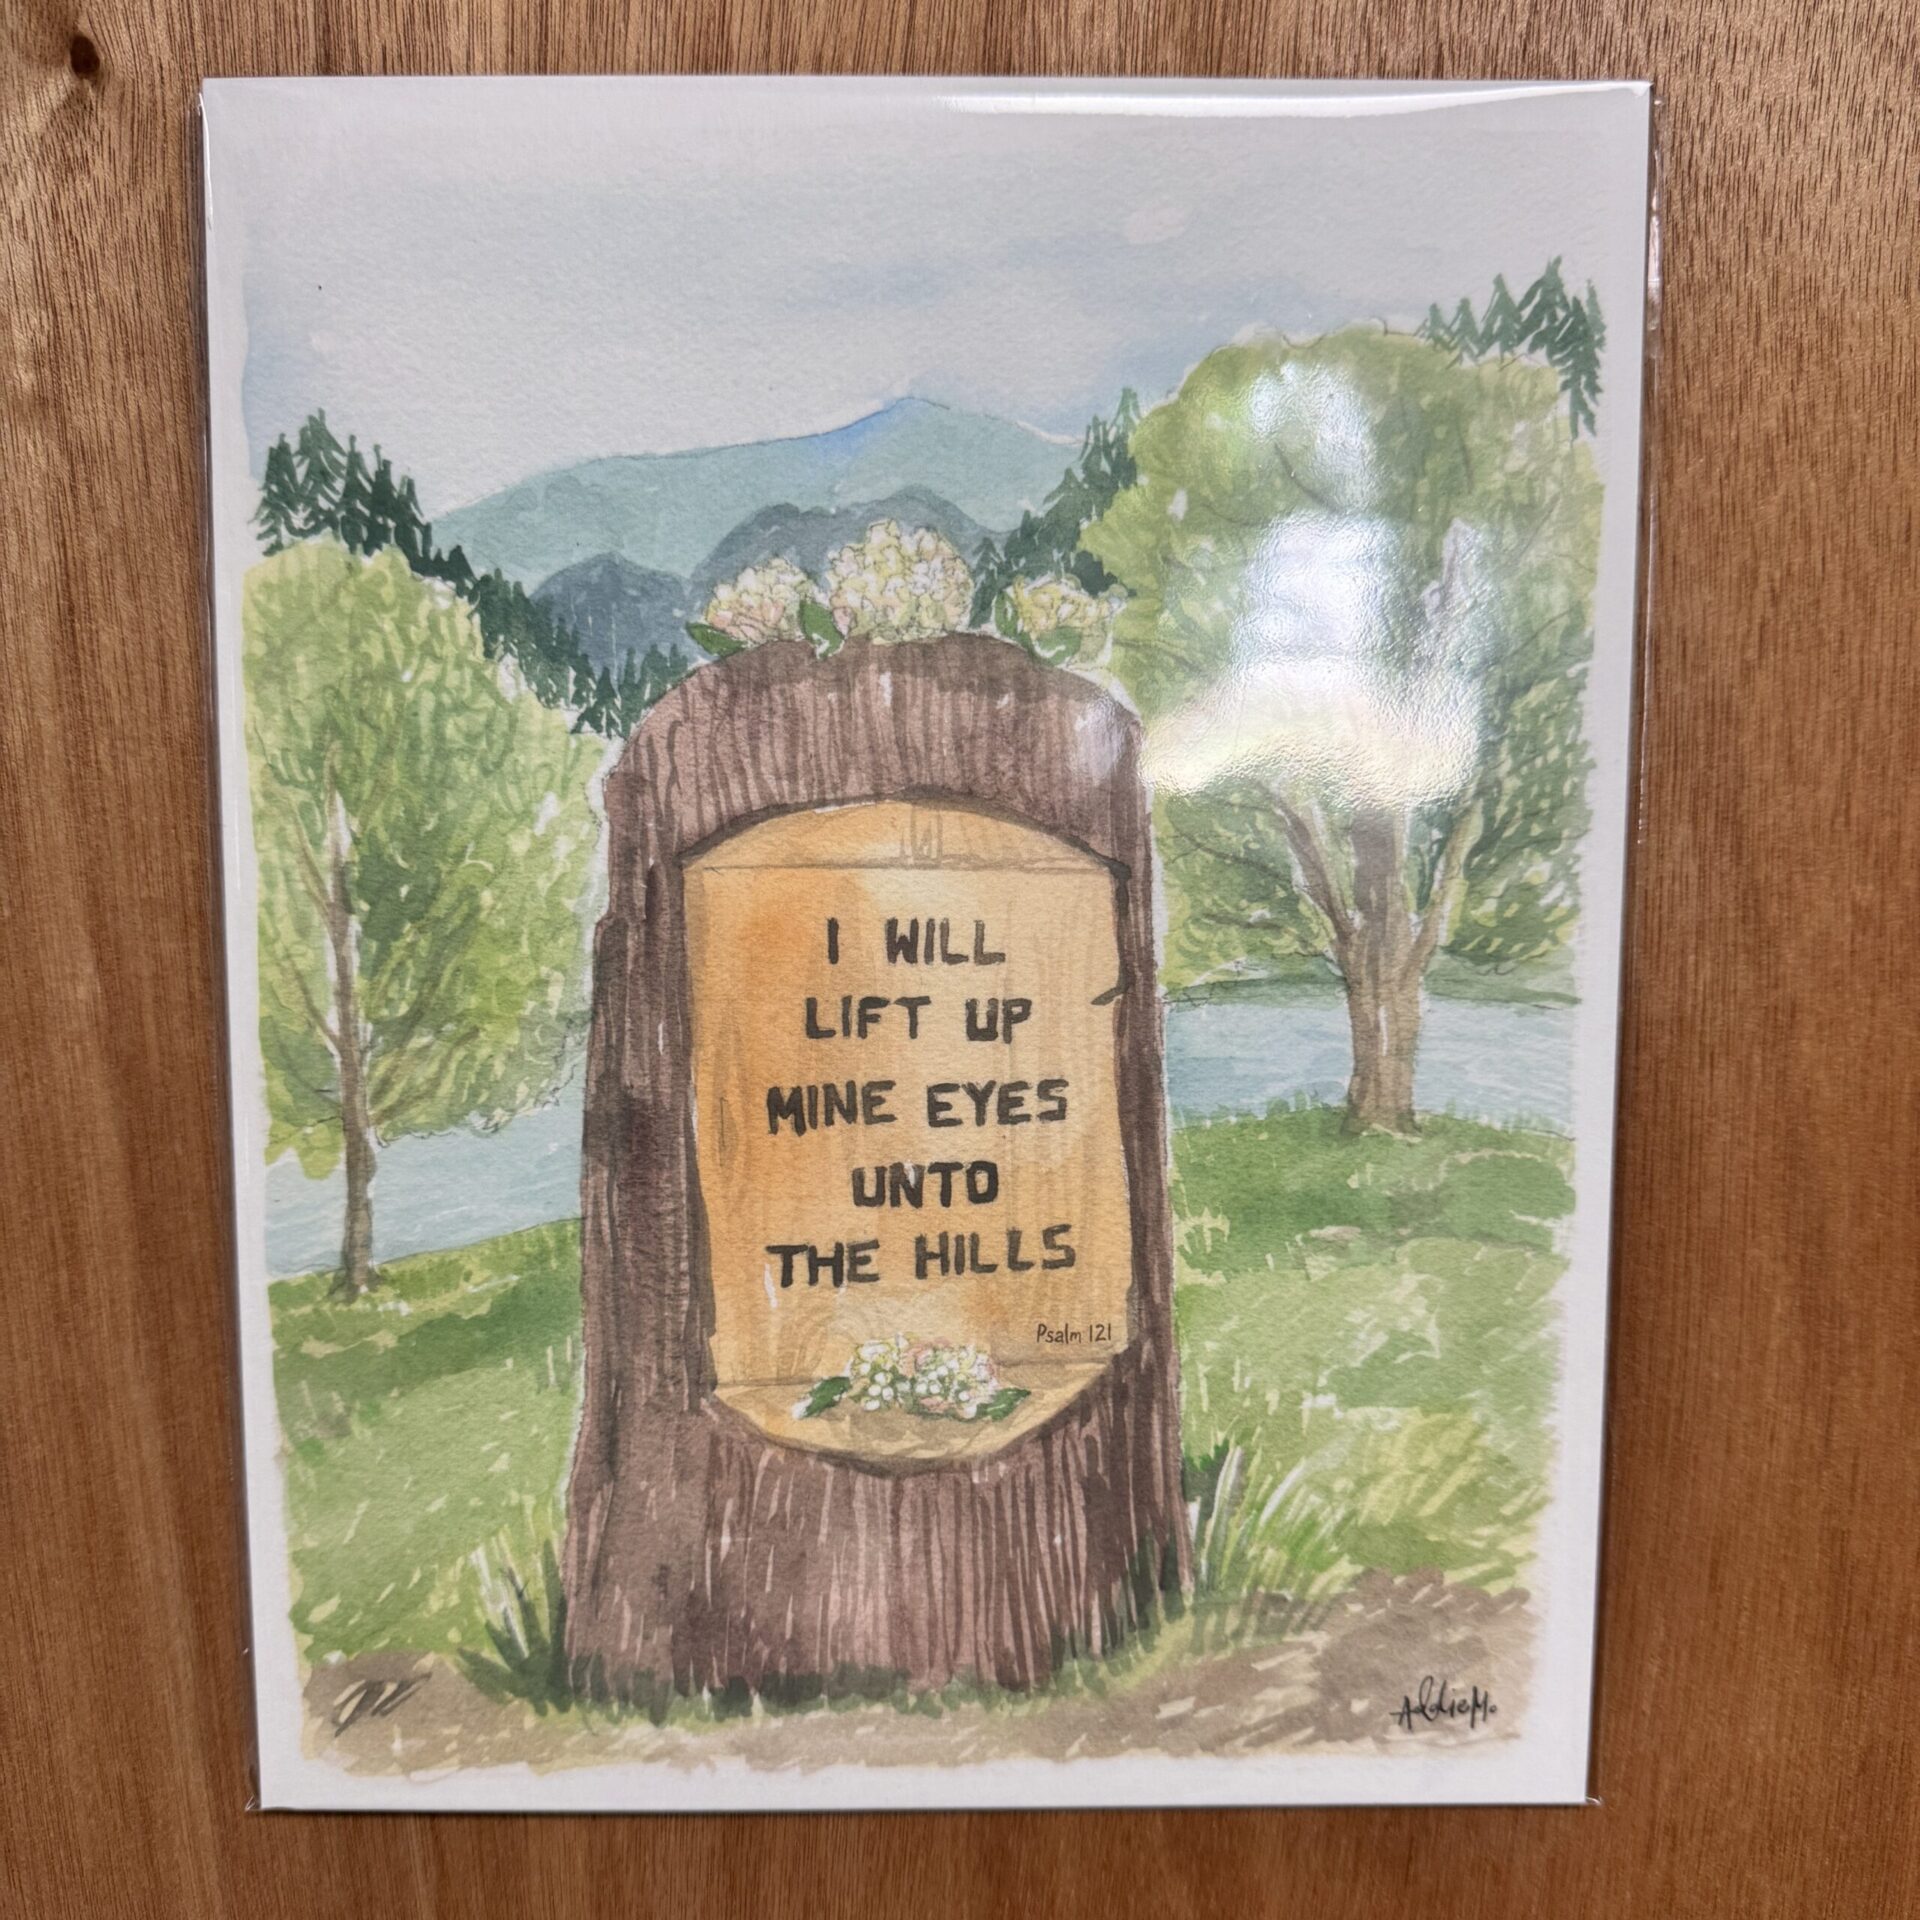 I WILL
LIFT UP
MINE EYES
UNTO
THE HILLS
Psalm 121
AddieM.